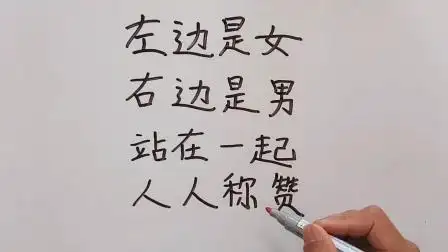 左边是女
右边是男
站在一起
人人称赞